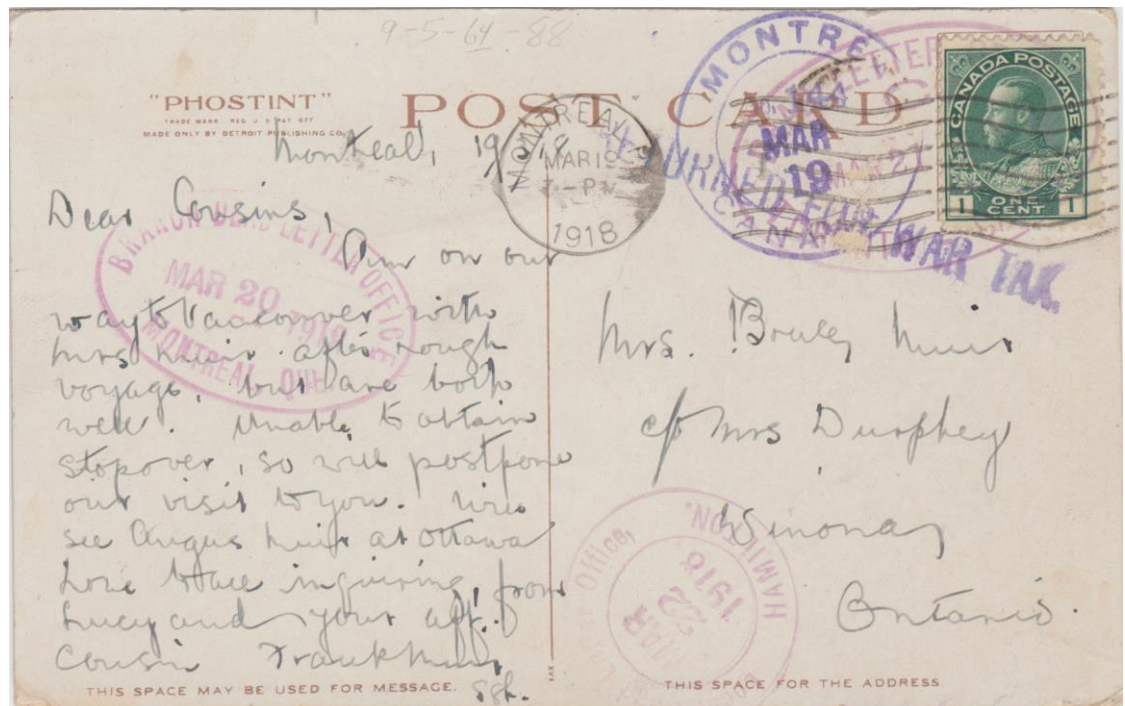 9-5-64-88
"PHOSTINT"
TRADE MARK REG U S PAT OFF
MADE ONLY BY DETROIT PUBLISHING CO.
POST CARD
MONTREAL
MAR 19
1918
MONTREAL
MAR
19
CANADA
RETURNED FOR WAR TAX.
CANADA POSTAGE
1 ONE CENT 1
BRANCH DEAD LETTER OFFICE
MAR 20 1918
MONTREAL QUE
Montreal, 19/3/18
Dear Cousins,
Am on our
way to Vancouver with
Mrs Muir after rough
voyage, but are both
well. Unable to obtain
stopover, so will postpone
our visit to you. Will
see Angus Muir at Ottawa
Love to all inquiring, from
Lucy and your aff.
Cousin Frank Muir
Mrs. Muir
c/o Mrs Durphey
Winona,
Ontario.
Letter Office, HAMILTON.
MAR
22
1918
THIS SPACE MAY BE USED FOR MESSAGE.
THIS SPACE FOR THE ADDRESS.